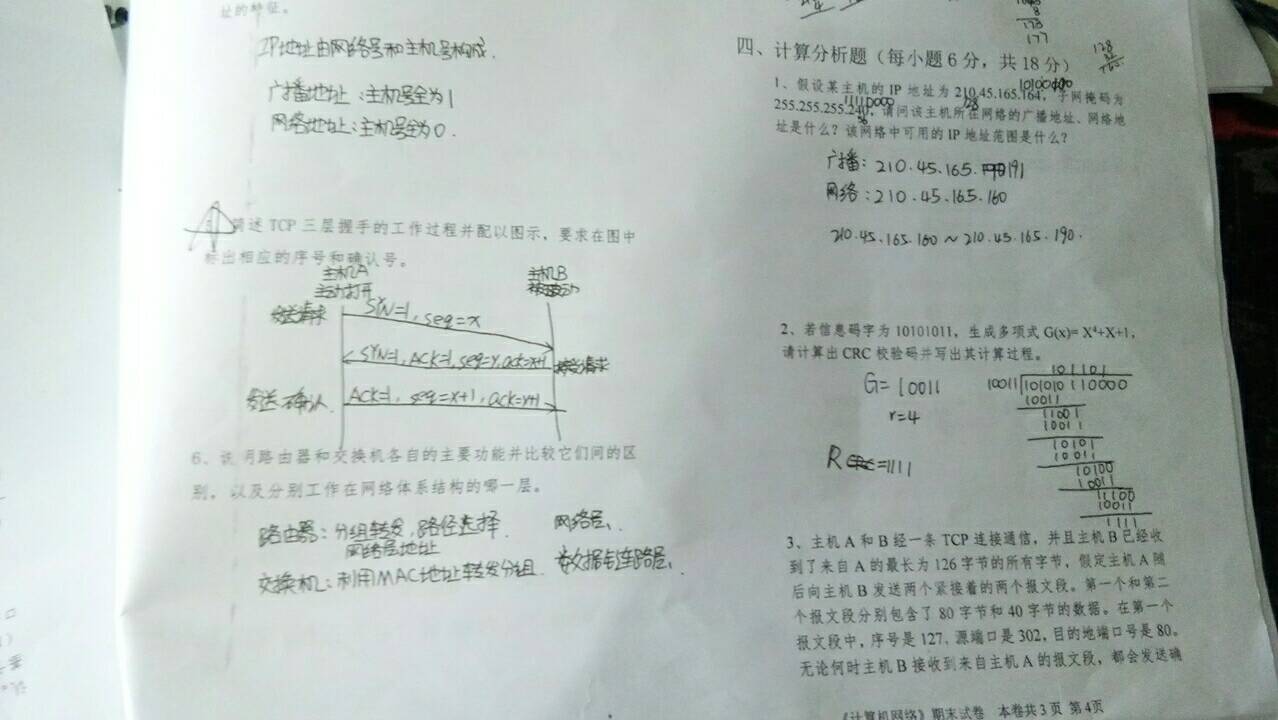 址的特征。
IP地址由网络号和主机号构成.
广播地址：主机号全为1
网络地址：主机号全为0.
简述TCP三层握手的工作过程并配以图示，要求在图中
标出相应的序号和确认号。
主机A
主动打开
主机B
发送请求
SYN=1, seq=x
SYN=1, ACK=1, seq=y, ack=x+1
接受请求
发送确认
ACK=1, seq=x+1, ack=y+1
6、说明路由器和交换机各自的主要功能并比较它们间的区
别，以及分别工作在网络体系结构的哪一层。
路由器：分组转发，路径选择. 网络层、
网络层地址
交换机：利用MAC地址转发分组. 数据链路层、
173
177
四、计算分析题（每小题6分，共18分）
128
1、假设某主机的IP地址为210.45.165.164，子网掩码为
11110000
255.255.255.240，请问该主机所在网络的广播地址、网络地
址是什么？该网络中可用的IP地址范围是什么？
广播：210.45.165.191
网络：210.45.165.160
210.45.165.160～210.45.165.190.
2、若信息码字为10101011，生成多项式G(x)= X⁴+X+1，
请计算出CRC校验码并写出其计算过程。
G=10011
r=4
R=1111
101101
10011 101010110000
10011
11001
10011
10101
10011
10100
10011
11100
10011
1111
3、主机A和B经一条TCP连接通信，并且主机B已经收
到了来自A的最长为126字节的所有字节，假定主机A随
后向主机B发送两个紧接着的两个报文段。第一个和第二
个报文段分别包含了80字节和40字节的数据。在第一个
报文段中，序号是127，源端口是302，目的地端口号是80。
无论何时主机B接收到来自主机A的报文段，都会发送确
《计算机网络》期末试卷 本卷共3页 第4页